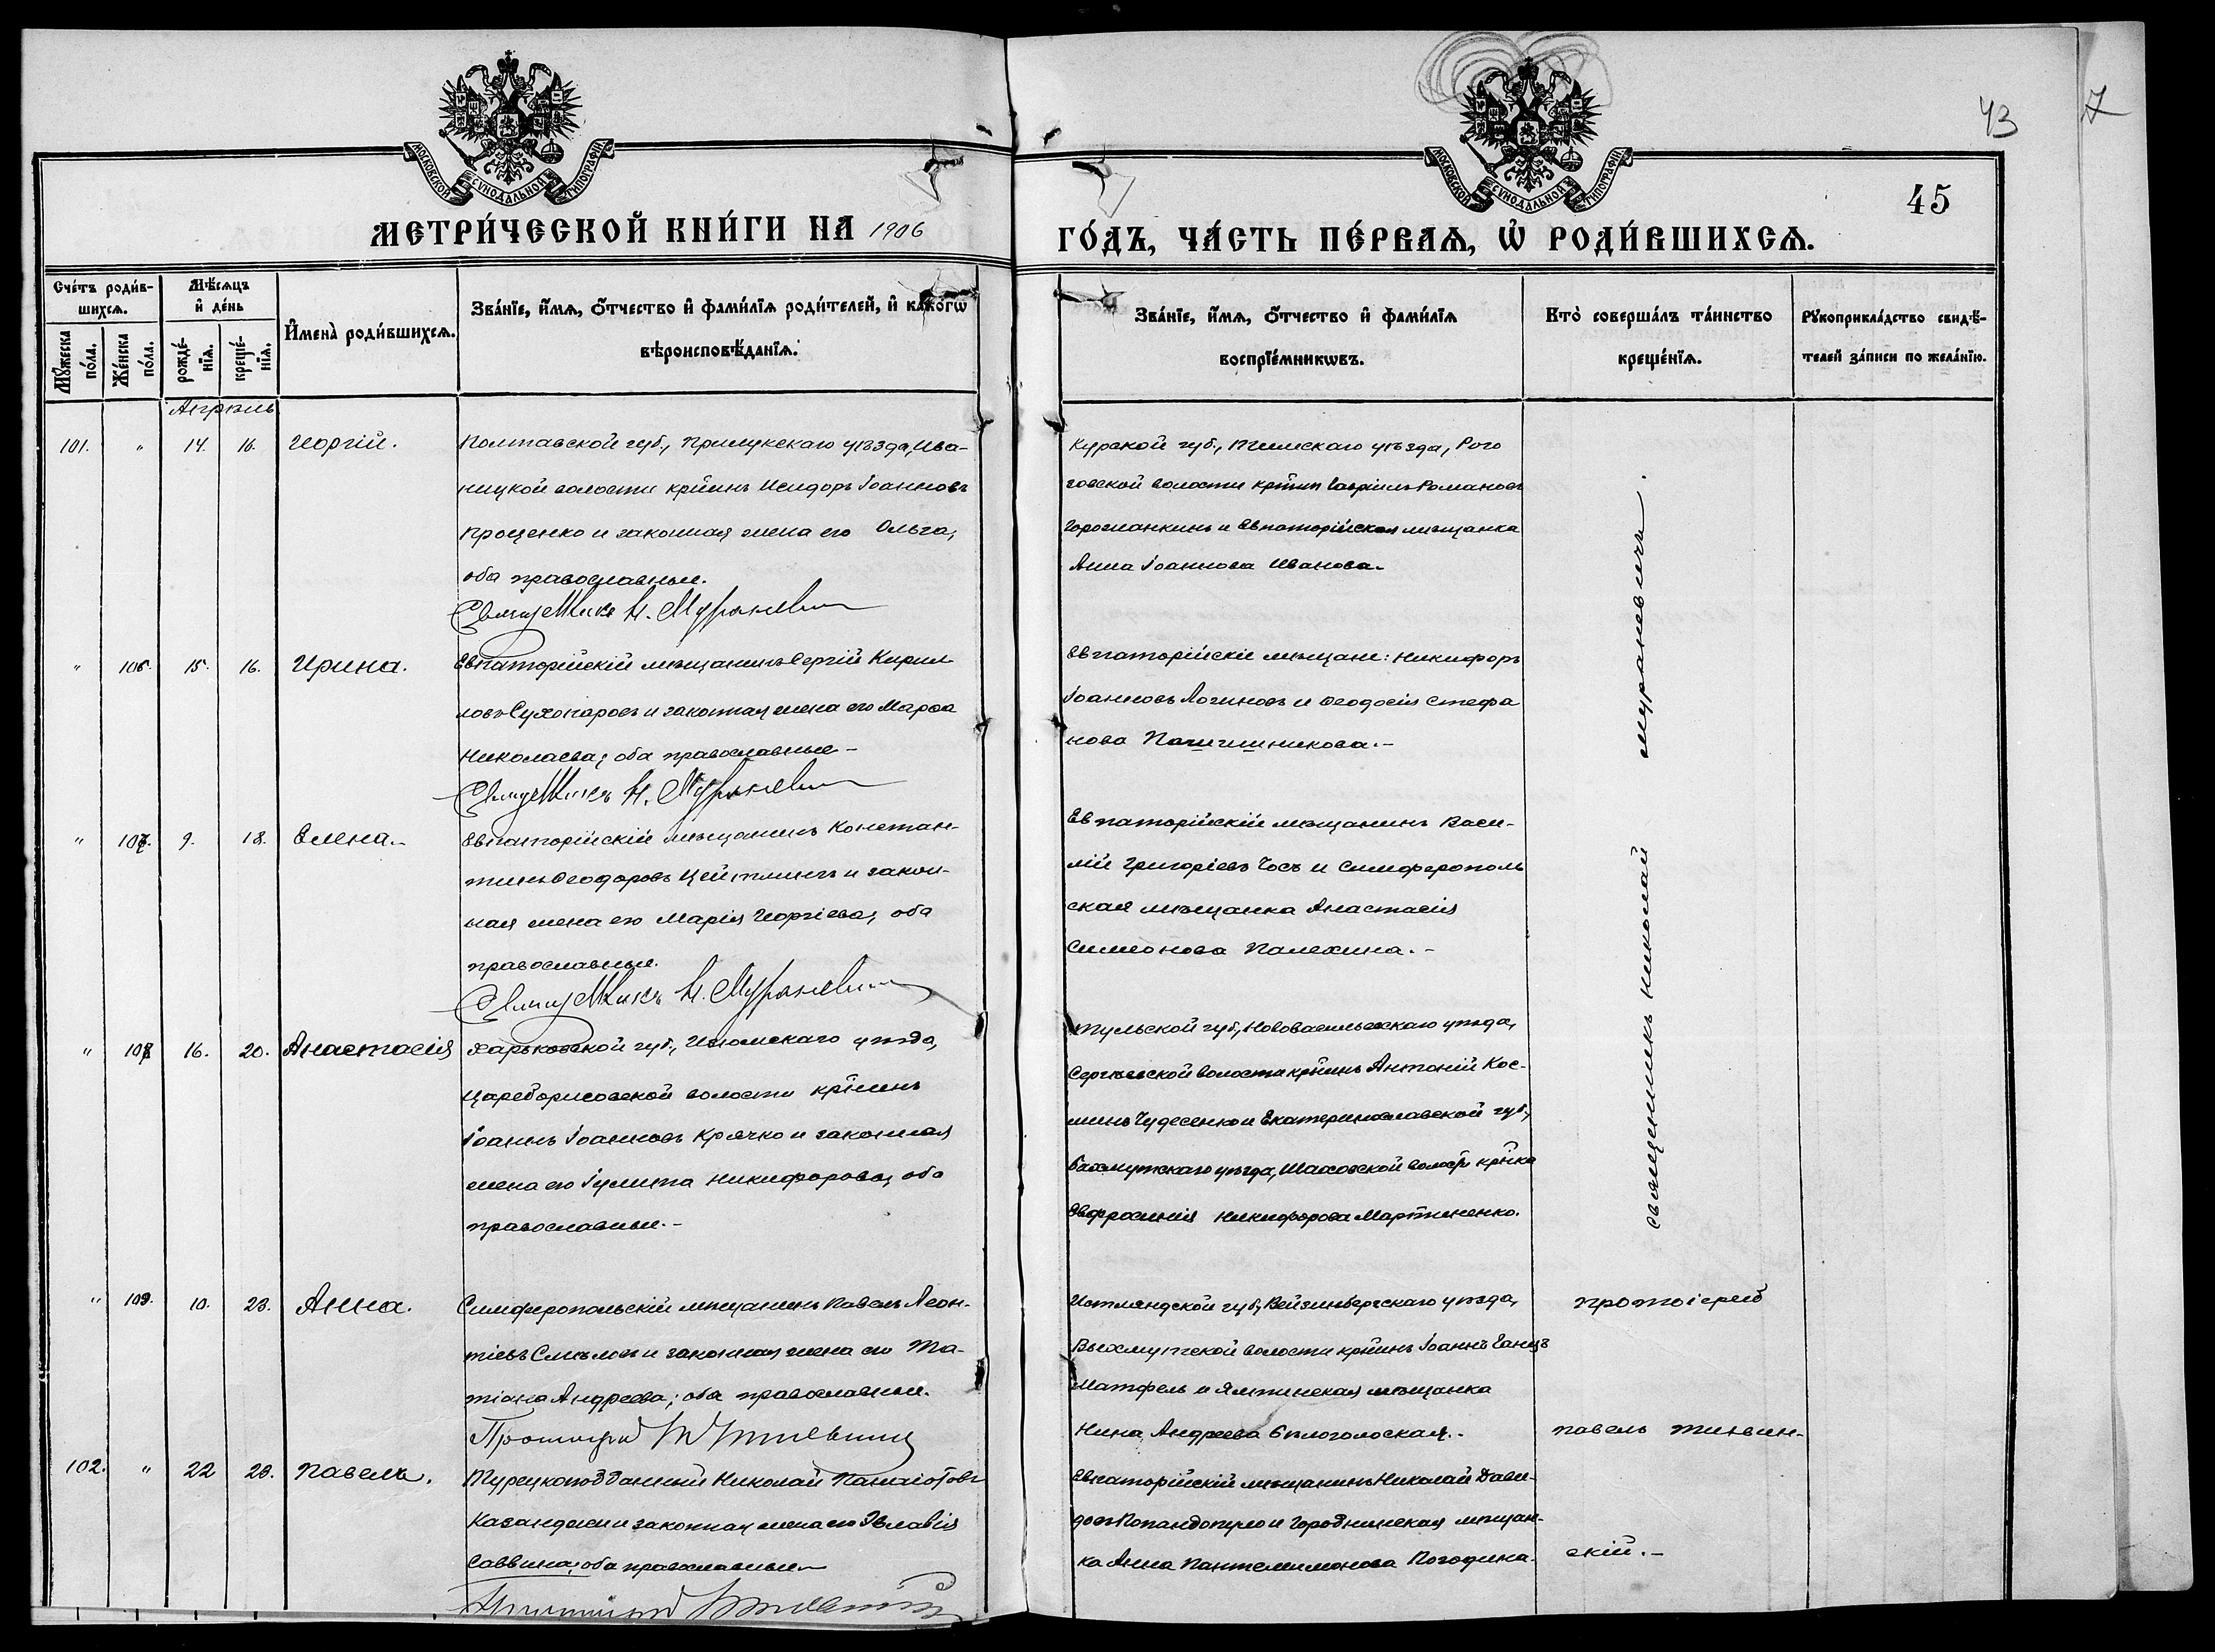 МОСКОВСКОЙ СѴНОДАЛЬНОЙ ТИПОГРАФІИ
МОСКОВСКОЙ СѴНОДАЛЬНОЙ ТИПОГРАФІИ
43
7
45
МЕТРИ́ЧЕСКОЙ КНИ́ГИ НА 1906
ГО́ДЪ, ЧА́СТЬ ПЕ́РВАѦ, Ѡ҆ РОДИ́ВШИХСѦ.
Сче́тъ роди́в-
шихсѧ.
Мꙋ́жеска
по́ла.
Же́нска
по́ла.
Мѣ́сѧцъ
и҆ де́нь
рожде́-
нїѧ.
креще́-
нїѧ.
И҆мена̀ роди́вшихсѧ.
Зва́нїе, и҆́мѧ, ѻ҆́тчество и҆ фами́лїѧ роди́телей, и҆ како́гѡ
вѣроисповѣ́данїѧ.
Зва́нїе, и҆́мѧ, ѻ҆́тчество и҆ фами́лїѧ
воспрїе́мникѡвъ.
Кто̀ соверша́лъ та́инство
креще́нїѧ.
Рꙋкоприкла́дство свидѣ́-
телей за́писи по жела́нїю.
Апрѣль
101. " 14. 16. Георгій.
Полтавской губ., Прилукскаго уѣзда, Ива-
ницкой волости кр̃нинъ Исидоръ Іоанновъ
Проценко и законная жена его Ольга,
оба православные.
Священникъ Н. Мураневич
Курской губ., уѣзда, Рого
зовской волости Гавріилъ Романовъ
и Евпаторійская мѣщанка
Анна Іоаннова Иванова.
" 106. 15. 16. Ирина.
Евпаторійскій мѣщанинъ Сергій Кирил
ловъ Сухопаровъ и законная жена его Марѳа
Николаева; оба православные -
Священникъ Н. Мураневич
Евпаторійскіе мѣщане: Никифоръ
Іоанновъ Логиновъ и Ѳеодосія Стефа
нова
" 107. 9. 18. Елена.
Евпаторійскій мѣщанинъ Констан-
тинъ Ѳеодоровъ Цейтлингъ и закон-
ная жена его Марія Георгіева, оба
православные.
Священникъ Н. Мураневич
Евпаторійскій мѣщанинъ Васи-
лій Григоріевъ Чосъ и Симферополь
ская мѣщанка Анастасія
Симеонова Палехина. -
" 108 16. 20. Анастасія
Харьковской губ., Изюмскаго уѣзда,
Цареборисовской волости кр̃нинъ
Іоаннъ Іоанновъ Крячко и законная
жена его Іулита Никифорова, оба
православные. -
Тульской губ., Новосильскаго уѣзда,
Сергіевской волости кр̃нинъ Антоній Кос-
минъ Чудесенко и Екатеринославской губ.,
Бахмутскаго уѣзда, Шаховской волости кр̃нка
Евфросинія Никифорова Мартиненко.
священникъ Николай Мураневичъ.
" 109. 10. 23. Анна.
Симферопольскій мѣщанинъ Павелъ Леон-
тіевъ Смѣловъ и законная жена его Та-
тіана Андреева; оба православные.
Протоіерей
Эстляндской губ., Вейзенбергскаго уѣзда,
волости кр̃нинъ Іоаннъ Ганцъ
и Ялтинская мѣщанка
Нина Андреева Бѣлоголовская. -
протоіерей
павелъ тихвин-
скій. -
102. " 22 23. Павелъ.
Турецкоподданный Николай Панаіотовъ
Казанджи и законная жена его Эвлавія
Саввина; оба православные
Евпаторійскій мѣщанинъ Николай Дави-
довъ Попандопуло и Городнинская мѣщан-
ка Анна Пантелеимонова Погодина.